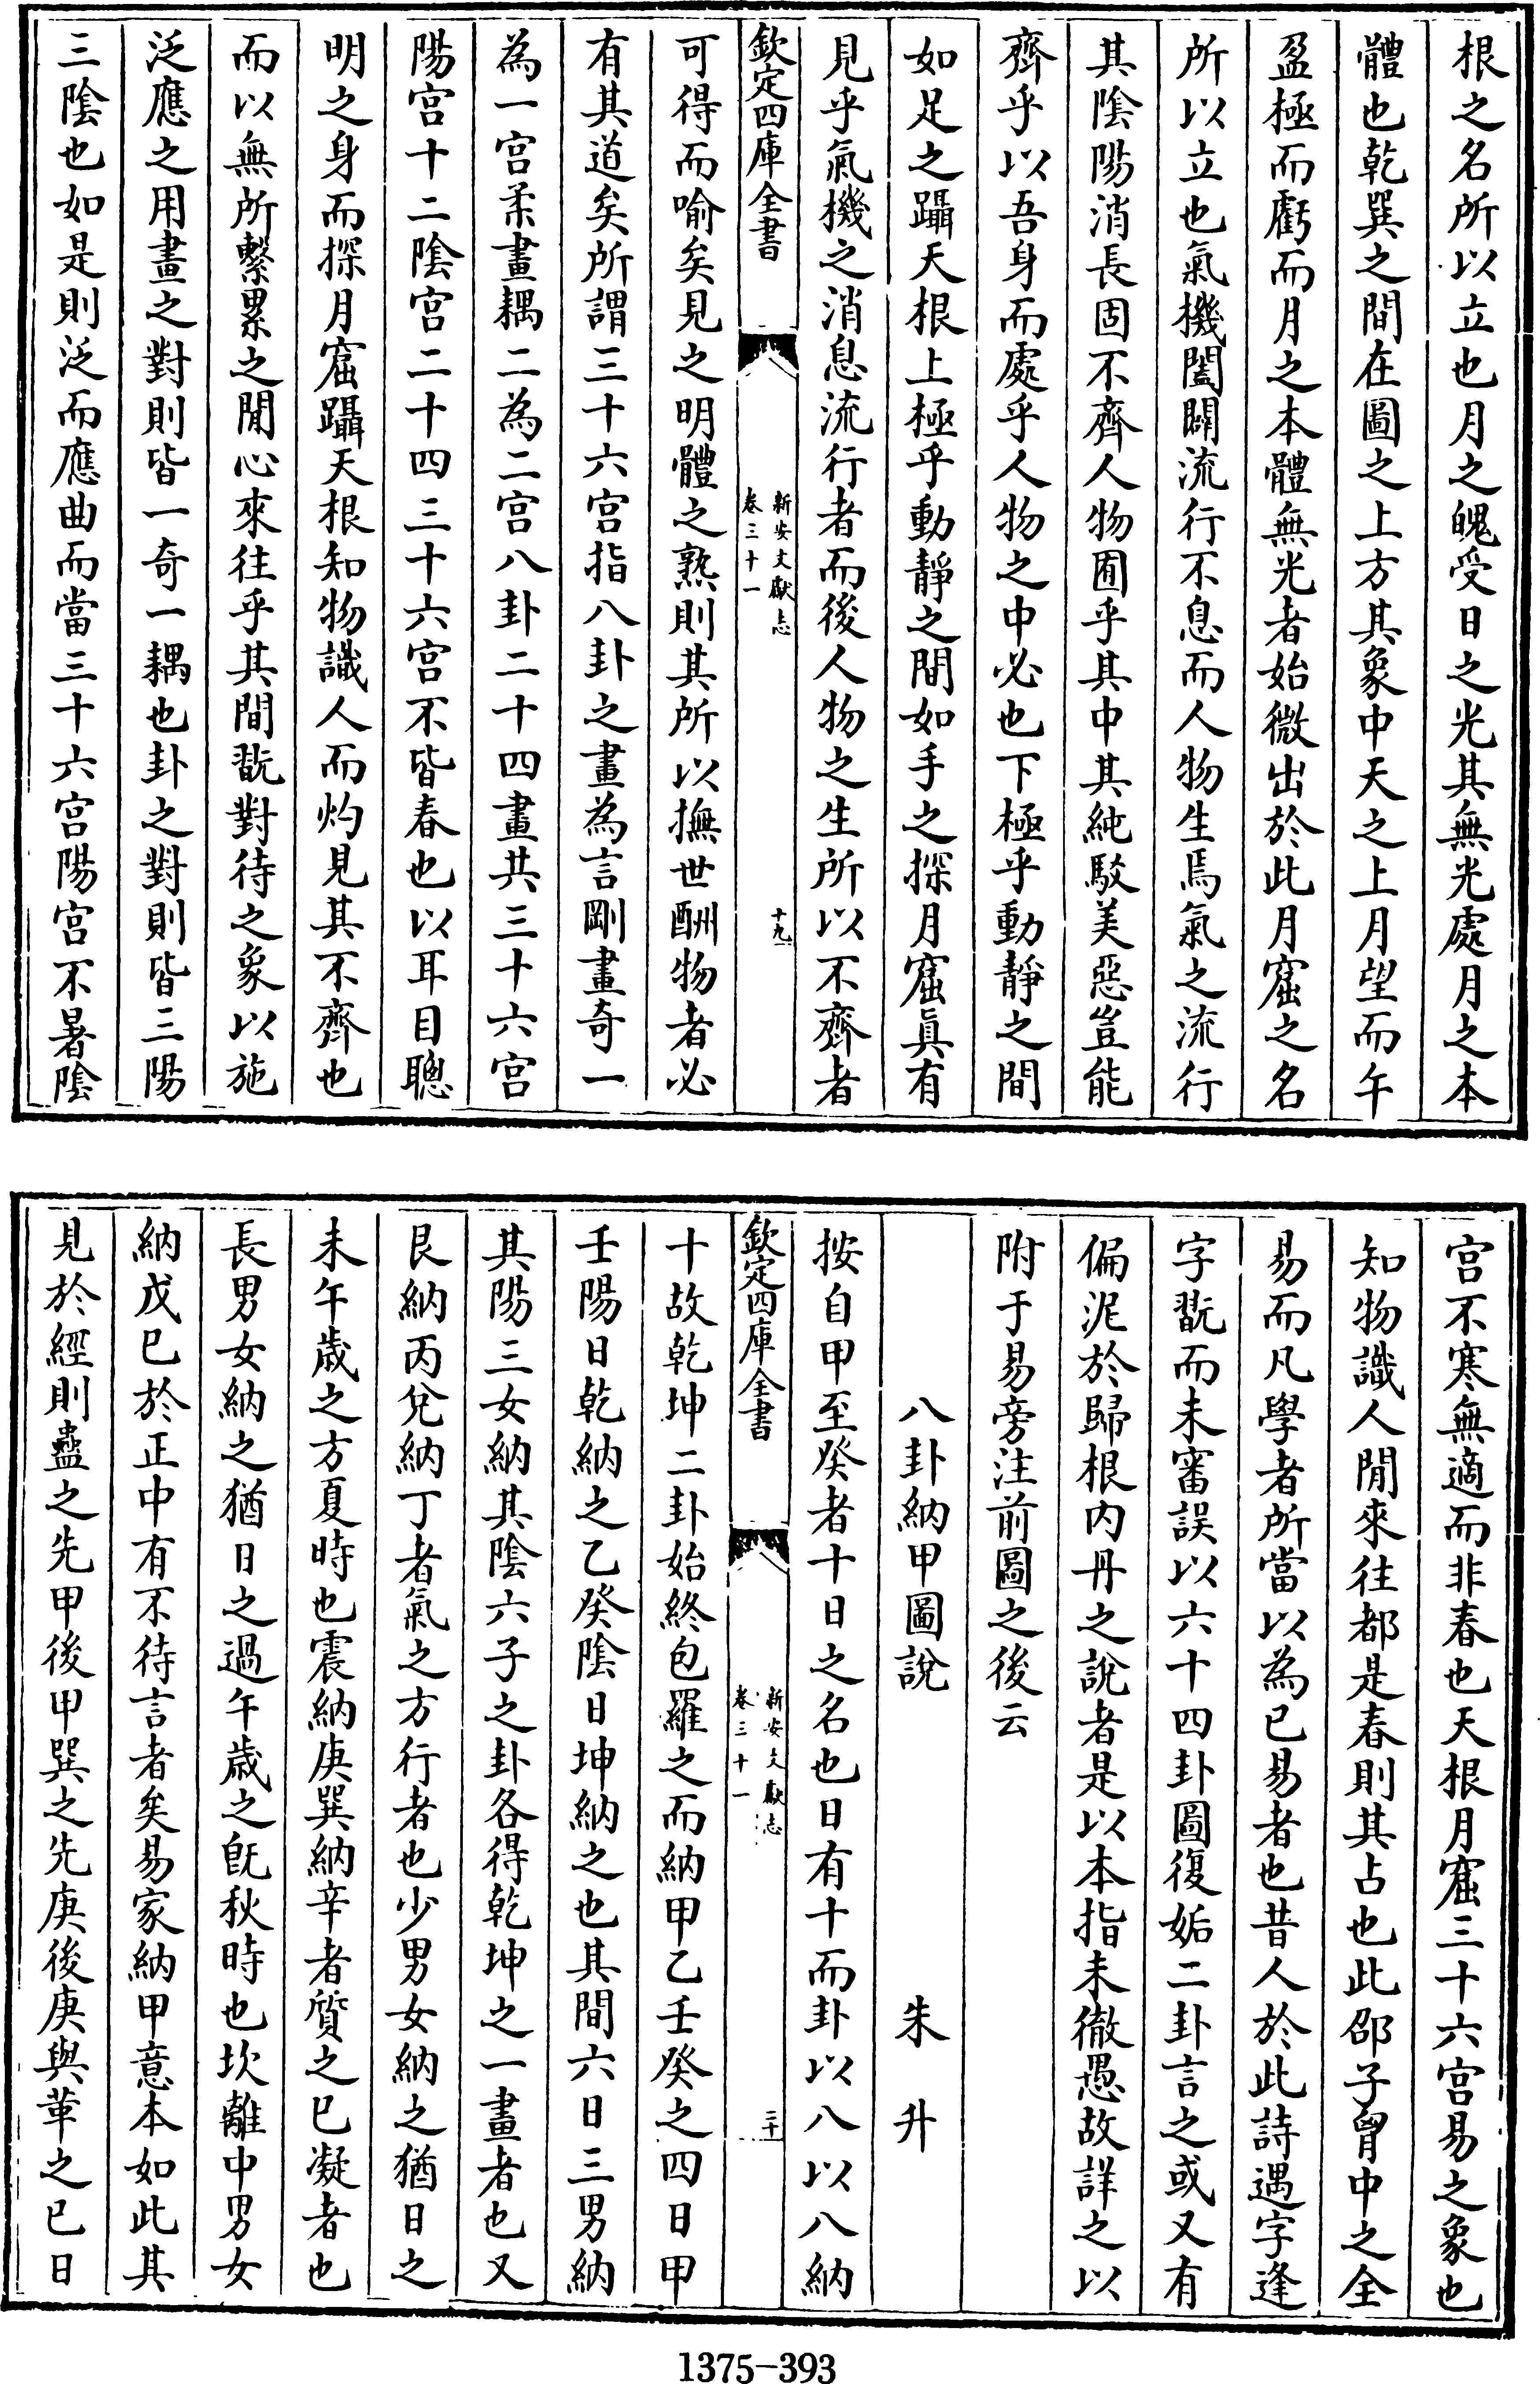 根之名所以立也月之魄受日之光其無光處月之本
體也乾巽之間在圖之上方其象中天之上月望而午
盈極而虧而月之本體無光者始微出於此月窟之名
所以立也氣機闔闢流行不息而人物生焉氣之流行
其隂陽消長固不齊人物囿乎其中其純駁美惡豈能
齊乎以吾身而處乎人物之中必也下極乎動靜之間
如足之躡天根上極乎動靜之間如手之探月窟眞有
見乎氣機之消息流行者而後人物之生所以不齊者
欽定四庫全書
新安文獻志
卷三十一
十九
可得而喻矣見之明體之熟則其所以撫世酬物者必
有其道矣所謂三十六宫指八卦之畫為言剛畫奇一
為一宫柔畫耦二為二宫八卦二十四畫共三十六宫
陽宫十二隂宫二十四三十六宫不皆春也以耳目聰
明之身而探月窟躡天根知物識人而灼見其不齊也
而以無所繫累之閒心來往乎其間翫對待之象以施
泛應之用畫之對則皆一奇一耦也卦之對則皆三陽
三隂也如是則泛而應曲而當三十六宫陽宫不暑隂
宫不寒無適而非春也天根月窟三十六宫易之象也
知物識人閒來往都是春則其占也此邵子胷中之全
易而凡學者所當以為已易者也昔人於此詩遇字逢
字翫而未審誤以六十四卦圖復姤二卦言之或又有
偏泥於歸根内丹之說者是以本指未徹愚故詳之以
附于易旁注前圖之後云
八卦納甲圖說
朱升
按自甲至癸者十日之名也日有十而卦以八以八納
欽定四庫全書
新安文獻志
卷三十一
二十
十故乾坤二卦始終包羅之而納甲乙壬癸之四日甲
壬陽日乾納之乙癸隂日坤納之也其間六日三男納
其陽三女納其隂六子之卦各得乾坤之一畫者也又
艮納丙兌納丁者氣之方行者也少男女納之猶日之
未午歲之方夏時也震納庚巽納辛者質之已凝者也
長男女納之猶日之過午歲之旣秋時也坎離中男女
納戊已於正中有不待言者矣易家納甲意本如此其
見於經則蠱之先甲後甲巽之先庚後庚與革之已日
1375-393